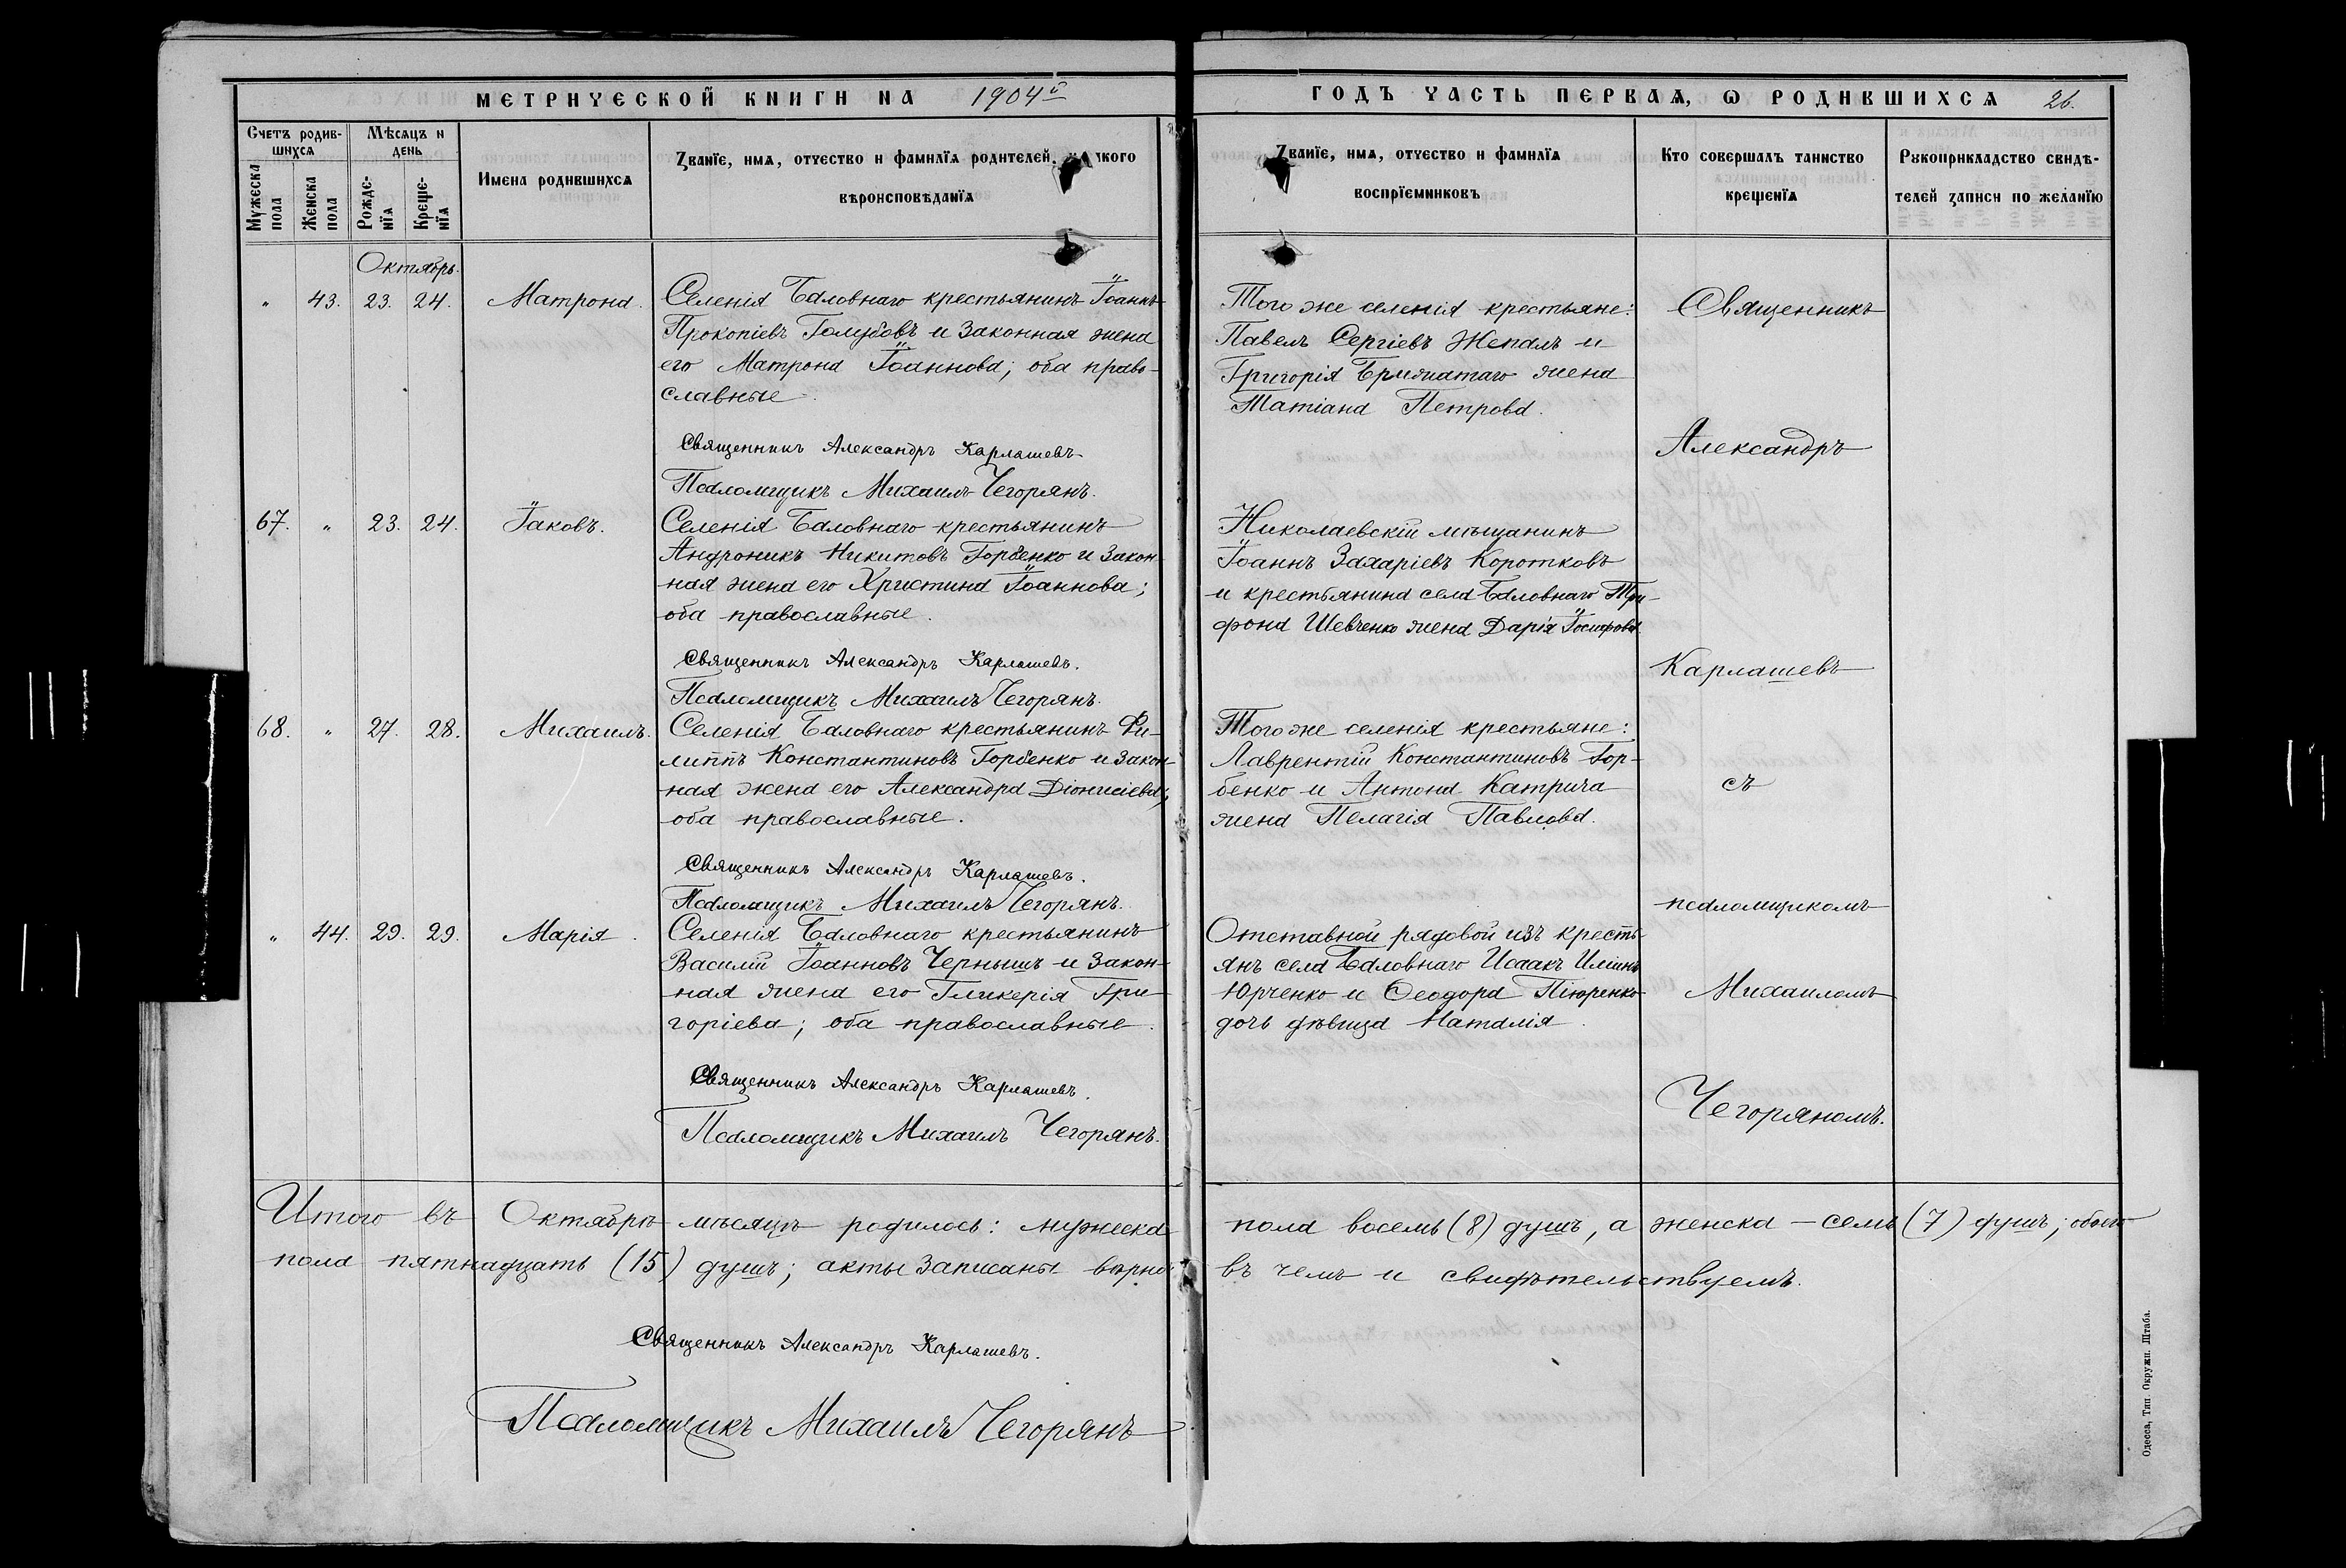 МЕТРИЧЕСКОЙ КНИГИ НА 1904й
ГОДЪ ЧАСТЬ ПЕРВАѦ, Ѡ РОДИВШИХСѦ 26.
Счетъ родив-
шихсѧ
Мѣсѧцъ и
день
Мужеска
пола
Женска
пола
Рожде-
нїѧ
Креще-
нїѧ
Имена родившихсѧ
Званїе, имѧ, отчество и фамилїѧ родителей,
вѣроисповѣданїѧ
Званїе, имѧ, отчество и фамилїѧ
воспрїемниковъ
Кто совершалъ таинство
крещенїѧ
Рукоприкладство свидѣ-
телей записи по желанїю
Октябрь.
" 43. 23. 24. Матрона.
Селенія Баловнаго крестьянинъ Іоаннъ
Прокопіевъ Голубовъ и законная жена
его Матрона Іоаннова; оба право-
славные.
Священникъ Александръ Карлашевъ
Псаломщикъ Михаилъ Чегорянъ.
Того же селенія крестьяне:
Павелъ Сергіевъ Жепалъ и
Григорія Брижатаго жена
Татіана Петрова.
67. " 23. 24. Іаковъ.
Селенія Баловнаго крестьянинъ
Андроникъ Никитовъ Горбенко и закон-
ная жена его Христина Іоаннова;
оба православные.
Священникъ Александръ Карлашевъ.
Псаломщикъ Михаилъ Чегорянъ.
Николаевскій мѣщанинъ
Іоаннъ Захаріевъ Коротковъ
и крестьянина села Баловнаго Три-
фона Шевченко жена Дарія Іосифова.
68. " 27. 28. Михаилъ.
Селенія Баловнаго крестьянинъ Фи-
липпъ Константиновъ Горбенко и закон-
ная жена его Александра Діонисіева;
оба православные.
Священникъ Александръ Карлашевъ.
Псаломщикъ Михаилъ Чегорянъ.
Того же селенія крестьяне:
Лаврентій Константиновъ Гор-
бенко и Антона Катрича
жена Пелагія Павлова.
" 44. 29. 29. Марія.
Селенія Баловнаго крестьянинъ
Василій Іоанновъ Чернышъ и закон-
ная жена его Гликерія Гри-
горіева; оба православные.
Священникъ Александръ Карлашевъ.
Псаломщикъ Михаилъ Чегорянъ.
Отставной рядовой изъ кресть-
янъ села Баловнаго Исаакъ Иліинъ
Юрченко и Ѳеодора Піюренко
дочь дѣвица Наталія.
Священникъ
Александръ
Карлашевъ
съ
псаломщикомъ
Михаиломъ
Чегоряномъ.
Итого въ Октябрѣ мѣсяцѣ родилось: мужеска пола восемь (8) душъ, а женска – семь (7) душъ; обоего
пола пятнадцать (15) душъ; акты записаны вѣрно въ чемъ и свидѣтельствуемъ.
Священникъ Александръ Карлашевъ.
Псаломщикъ Михаилъ Чегорянъ
Одесса, Тип. Окружн. Штаба.